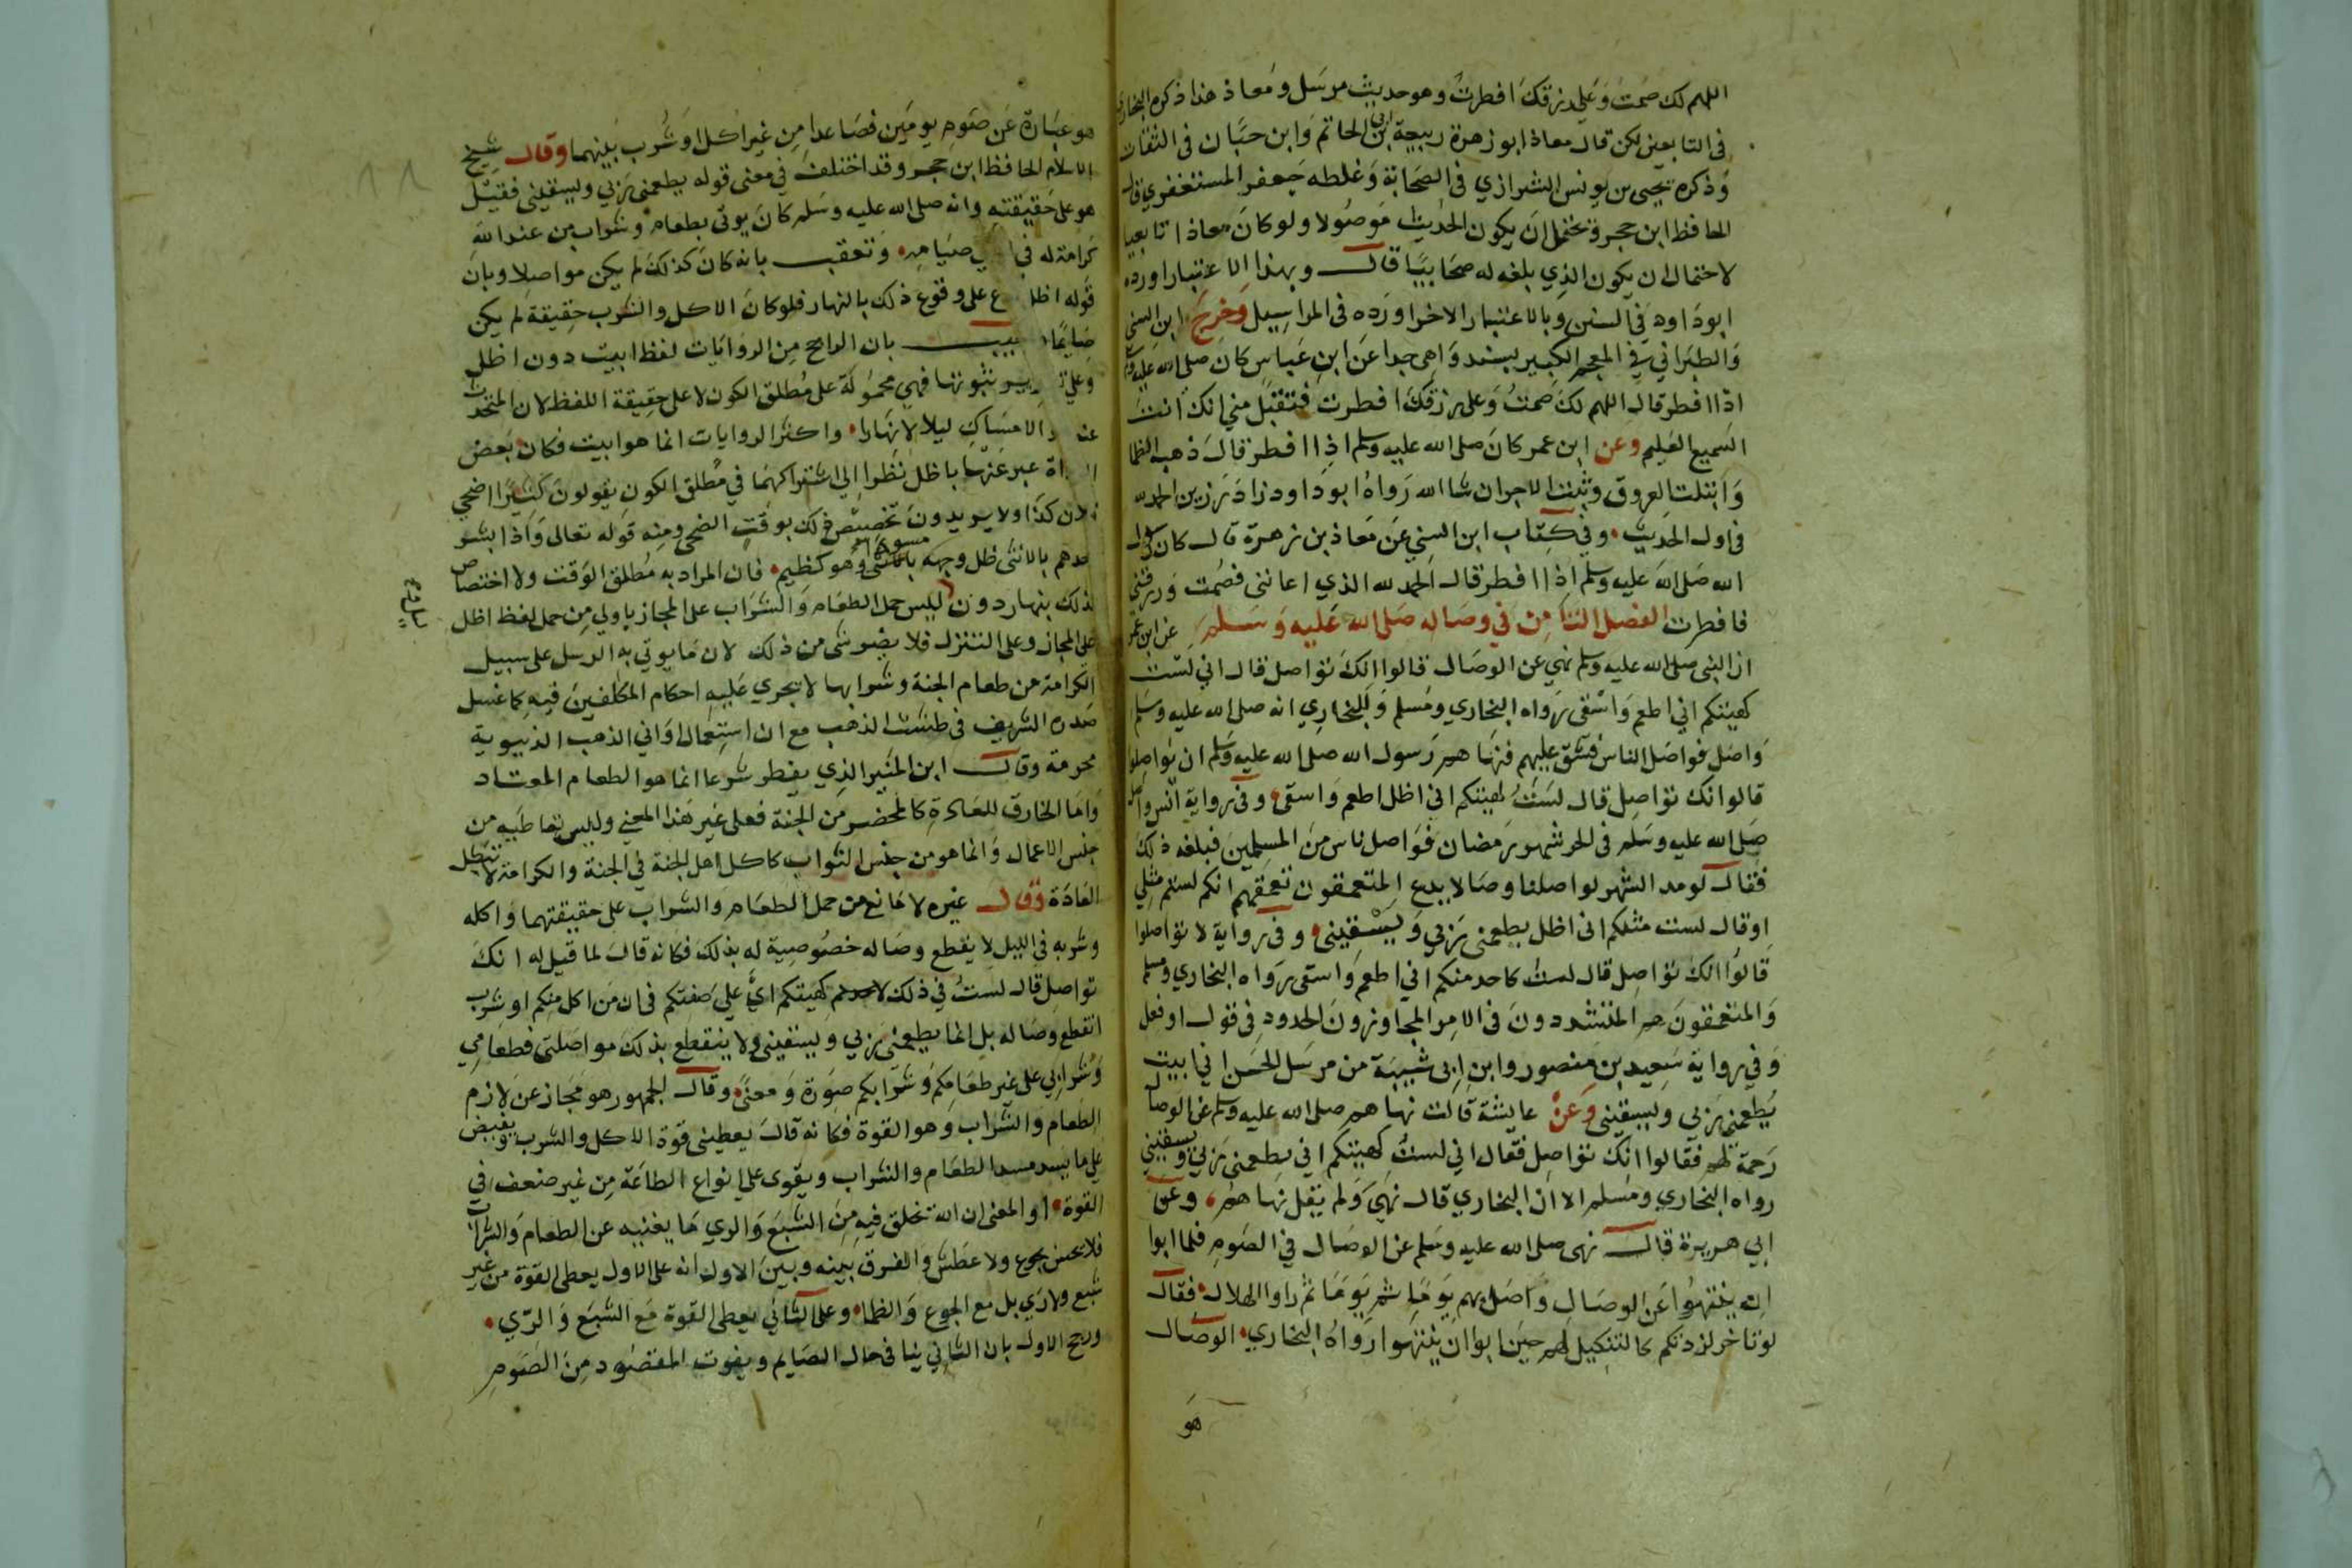 اللهم لك صمت وعلي رزقك افطرت وهو حديث مرسل ومعاذ هذا ذكره البخاري
في التابعين لكن قال معاذ ابو زهرة ربيحة ابن ابي الحاتم وابن حبان في الثقات
وذكره يحيى بن يونس الشيرازي في الصحابة وغلطه جعفر المستغفري قال
الحافظ ابن حجر ويحتمل ان يكون الحديث موصولا ولو كان معاذا تابعيا
لاحتمال ان يكون الذي بلغه له صحابيا قال وبهذا الاعتبار اورده
ابو داود في السنن وبالاعتبار الاخر اورده في المراسيل وخرج ابن السني
والطبراني في المعجم الكبير بسند واهي جدا عن ابن عباس كان صلى الله عليه وسلم
اذا افطر قال اللهم لك صمت وعلى رزقك افطرت فتقبل مني انك انت
السميع العليم وعن ابن عمر كان صلى الله عليه وسلم اذا افطر قال ذهب الظما
وابتلت العروق وثبت الاجر ان شا الله رواه ابو داود وزاد رزين الحمد لله
في اول الحديث وفي كتاب ابن السني عن معاذ بن زهرة قال كان رسول
الله صلى الله عليه وسلم اذا افطر قال الحمد لله الذي اعانني فصمت ورزقني
فافطرت الفصل الثامن في وصاله صلى الله عليه وسلم عن ابن عمر
ان النبي صلى الله عليه وسلم نهي عن الوصال قالوا انك تواصل قال اني لست
كهيئتكم اني اطعم واسقى رواه البخاري ومسلم وللبخاري انه صلى الله عليه وسلم
واصل فواصل الناس فشق عليهم فنهاهم رسول الله صلى الله عليه وسلم ان يواصلوا
قالوا انك تواصل قال لست كهيئتكم اني اظل اطعم واسقى وفي رواية انس واصل
صلى الله عليه وسلم في اخر شهر رمضان فواصل ناس من المسلمين فبلغه ذلك
فقال لو مد الشهر لواصلنا وصالا يدع المتعمقون تعمقهم انكم لستم مثلي
او قال لست مثلكم اني اظل يطعمني ربي ويسقيني وفي رواية لا تواصلوا
قالوا انك تواصل قال لست كاحد منكم اني اطعم واسقى رواه البخاري ومسلم
والمتعمقون هم المتشددون في الامر المجاوزون الحدود في قول او فعل
وفي رواية سعيد بن منصور وابن ابي شيبة من مرسل الحسن اني ابيت
يطعمني ربي ويسقيني وعن عايشة قالت نهاهم صلى الله عليه وسلم عن الوصال
رحمة لهم فقالوا انك تواصل فقال اني لست كهيئتكم اني يطعمني ربي ويسقيني
رواه البخاري ومسلم الا ان البخاري قال نهي ولم يقل نهاهم وعن
ابي هريرة قال نهى صلى الله عليه وسلم عن الوصال في الصوم فلما ابوا
ان ينتهوا عن الوصال واصل بهم يوما ثم يوما ثم راوا الهلال فقال
لو تاخر لزدتكم كالتنكيل لهم حين ابوا ان ينتهوا رواه البخاري الوصال
هو
هو عبارة عن صوم يومين فصاعدا من غير اكل او شرب بينهما وقال شيخ
الاسلام الحافظ ابن حجر وقد اختلف في معنى قوله يطعمني ربي ويسقيني فقيل
هو على حقيقته وانه صلى الله عليه وسلم كان يوتى بطعام وشراب من عند الله
كرامة له في صيامه وتعقب بانه كان كذلك لم يكن مواصلا وبان
قوله اظل على وقوع ذلك بالنهار فلو كان الاكل والشرب حقيقة لم يكن
صايما بان الراجح من الروايات لفظ ابيت دون اظل
وعلي ثبوتها فهي محمولة على مطلق الكون لا على حقيقة اللفظ لان المتحدث
عنه الامساك ليلا لا نهارا واكثر الروايات انما هو ابيت فكان بعض
عبر عنها باظل نظرا الي اشتراكهما في مطلق الكون يقولون كثيرا اضحي
فلان كذا ولا يريدون تخصيص ذلك بوقت الضحي ومنه قوله تعالى واذا بشر
احدهم بالانثى ظل وجهه مسودا وهو كظيم فان المراد به مطلق الوقت ولا اختصاص
لذلك بنهار دون ليل وليس حمل الطعام والشراب على المجاز باولي من حمل لفظ اظل
على المجاز وعلى التنزل فلا يضر شي من ذلك لان ما يوتي به الرسل على سبيل
الكرامة من طعام الجنة وشرابها لا يجري عليه احكام المكلفين فيه كما غسل
صدره الشريف في طست الذهب مع ان استعمال اواني الذهب الدنيوية
محرمة وقال ابن المنير الذي يفطر شرعا انما هو الطعام المعتاد
واما الخارق للعادة كالمحضر من الجنة فعلى غير هذا المعني وليس تعاطيه من
جنس الاعمال وانما هو من جنس الثواب كاكل اهل الجنة في الجنة والكرامة لا تبطل
العادة وقال غيره لا مانع من حمل الطعام والشراب على حقيقتهما واكله
وشربه في الليل لا يقطع وصاله خصوصية له بذلك فكانه قال لما قيل له انك
تواصل قال لست في ذلك كهيئتكم اي علي صفتكم في ان من اكل منكم او شرب
انقطع وصاله بل انما يطعمني ربي ويسقيني ولا ينقطع بذلك مواصلتي فطعامي
وشرابي على غير طعامكم وشرابكم صورة ومعني وقال الجمهور هو مجاز عن لازم
الطعام والشراب وهو القوة فكانه قال يعطيني قوة الاكل والشرب ويفيض
علي ما يسد مسد الطعام والشراب ويقوى على انواع الطاعة من غير ضعف في
القوة او المعنى ان الله يخلق فيه من الشبع والري ما يغنيه عن الطعام والشراب
فلا يحس بجوع ولا عطش والفرق بينه وبين الاول انه على الاول يعطى القوة من غير
شبع ولا ري بل مع الجوع والظما وعلى الثاني يعطى القوة مع الشبع والري
ورجح الاول بان الثاني ينافي حال الصايم ويفوت المقصود من الصوم